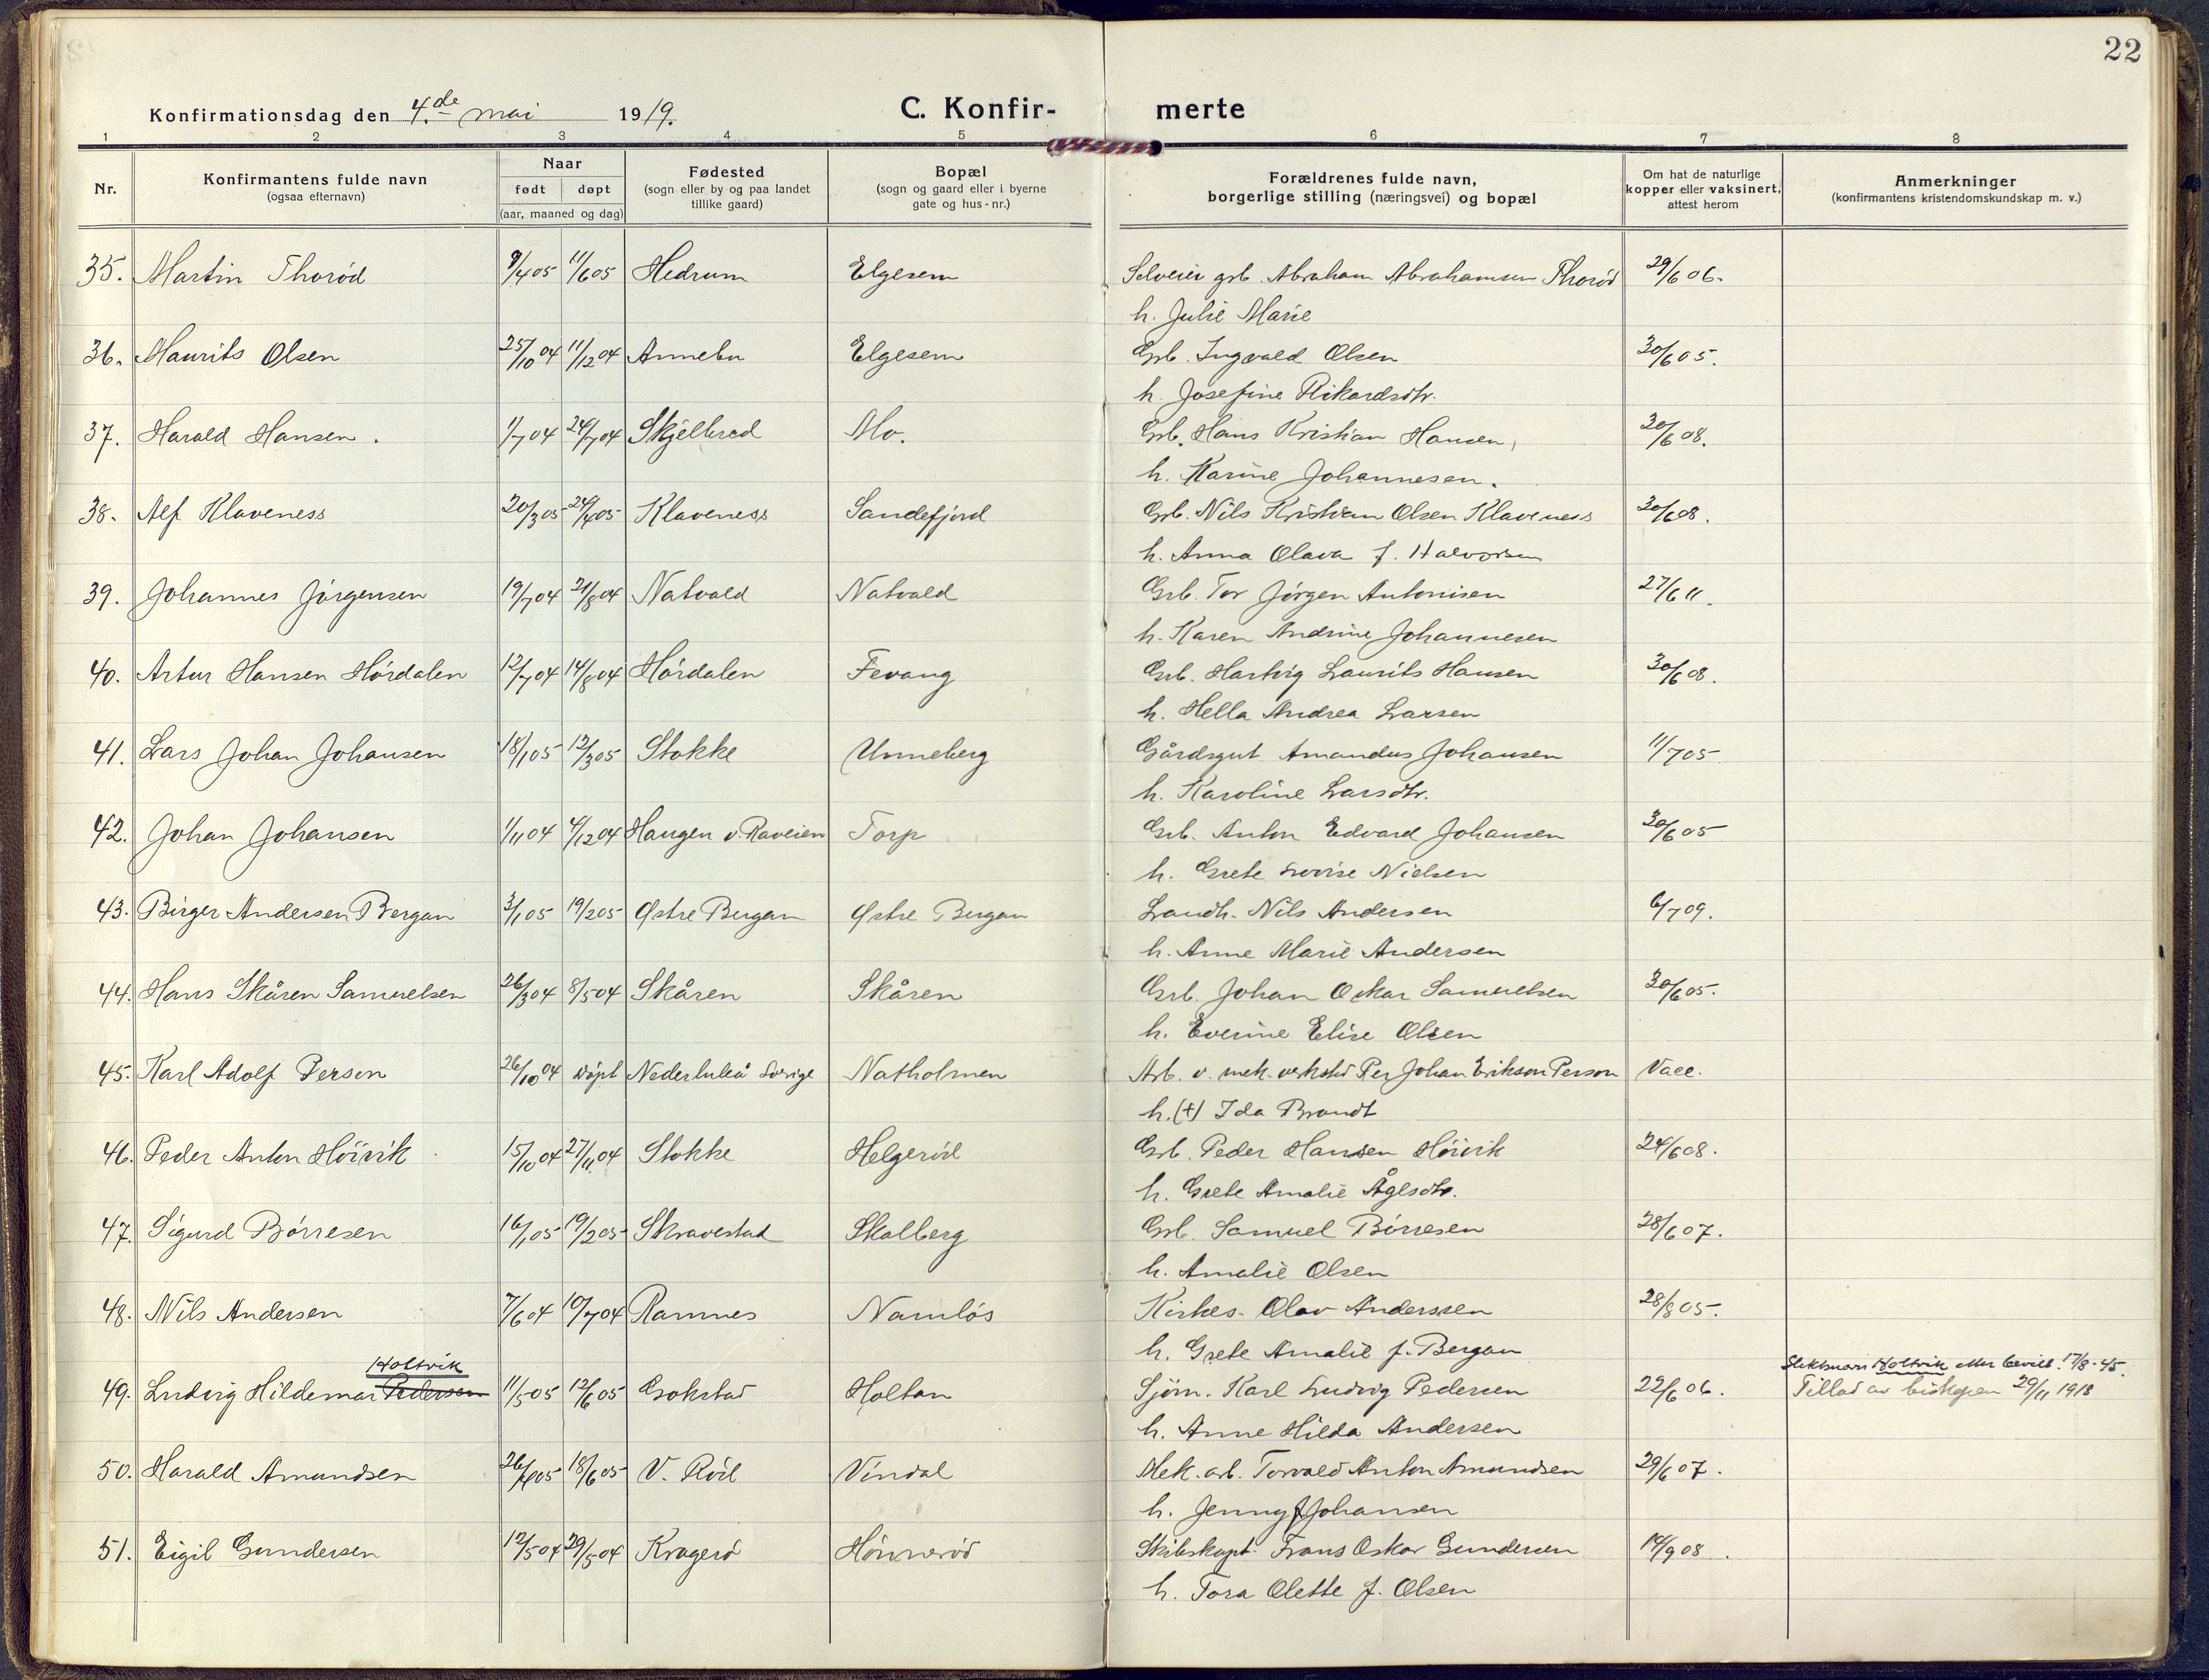 22
Konfirmationsdag den 4.de mai 1919. C. Konfir- merte
1 2 3 4 5 6 7 8
Nr. Konfirmantens fulde navn (ogsaa efternavn) Naar født døpt (aar, maaned og dag) Fødested (sogn eller by og paa landet tillike gaard) Bopæl (sogn og gaard eller i byerne gate og hus-nr.) Forældrenes fulde navn, borgerlige stilling (næringsvei) og bopæl Om hat de naturlige kopper eller vaksinert, attest herom Anmerkninger (konfirmantens kristendomskundskap m. v.)
35. Martin Thorød 9/4 05 11/6 05 Hedrum Elgesem Selveier grb. Abraham Abrahamsen Thorød 29/6 06.
h. Julie Marie
36. Maurits Olsen 25/10 04 11/12 04 Annebu Elgesem Grb. Ingvald Olsen 30/6 05.
h. Josefine Rikardsdtr.
37. Harald Hansen. 1/7 04 24/7 04 Skjellered Mo. Grb. Hans Kristian Hansen, 30/6 08.
h. Karine Johannesen.
38. Alf Klaveness 20/3 05 24/4 05 Klaveness Sandefjord Grb. Nils Kristian Olsen Klaveness 30/6 08.
h. Anna Olava f. Halvorsen
39. Johannes Jørgensen 19/7 04 21/8 04 Natvald Natvald Grb. Tor Jørgen Antonisen 27/6 11.
h. Karen Andrine Johannesen
40. Artur Hansen Hørdalen 12/7 04 14/8 04 Hørdalen Fevang Grb. Hartvig Laurits Hansen 30/6 08.
h. Hella Andrea Larsen
41. Lars Johan Johansen 18/1 05 12/3 05 Stokke Unneberg Gårdsgut Amandus Johansen 11/7 05
h. Karoline Larsdtr.
42. Johan Johansen 1/11 04 4/12 04 Haugen v. Raveien Torp Grb. Anton Edvard Johansen 30/6 05
h. Grete Lovise Nielsen
43. Birger Andersen Bergan 3/1 05 19/2 05 Østre Bergan Østre Bergan Landh. Nils Andersen 6/7 09.
h. Anne Marie Andersen
44. Hans Skåren Samuelsen 26/3 04 8/5 04 Skåren Skåren Grb. Johan Oskar Samuelsen 30/6 05.
h. Everine Elise Olsen
45. Karl Adolf Person 26/10 04 døpt Nederluleå Sverige Natholmen Arb. v. mek. verksted Per Johan Erikson Person Vacc.
h. (+) Ida Brandt
46. Peder Anton Høivik 15/10 04 27/11 04 Stokke Helgerød Grb. Peder Hansen Høivik 24/6 08.
h. Grete Amalie Ågesdtr.
47. Sigurd Børresen 16/1 05 19/2 05 Skravestad Skalberg Grb. Samuel Børresen 28/6 07.
h. Amalie Olsen
48. Nils Andersen 7/6 04 10/7 04 Ramnes Namløs Kirkes. Olav Anderssen 28/8 05.
h. Grete Amalie f. Bergan
Holtvik Slektsnavn Holtvik etter bevill. 17/8-45.
49. Ludvig Hildemar Pedersen 11/5 05 12/6 05 Gokstad Holtan Sjøm. Karl Ludvig Pedersen 22/6 06. Tillad av biskopen 29/11 1918
h. Anne Hilda Andersen
50. Harald Amundsen 26/4 05 18/6 05 V. Rød Vindal Mek. arb. Torvald Anton Amundsen 29/6 07.
h. Jenny f Johansen
51. Eigil Gundersen 12/5 04 29/5 04 Kragerø Hønnerød Skibskapt. Frans Oskar Gundersen 14/9 08.
h. Tora Olette f. Olsen